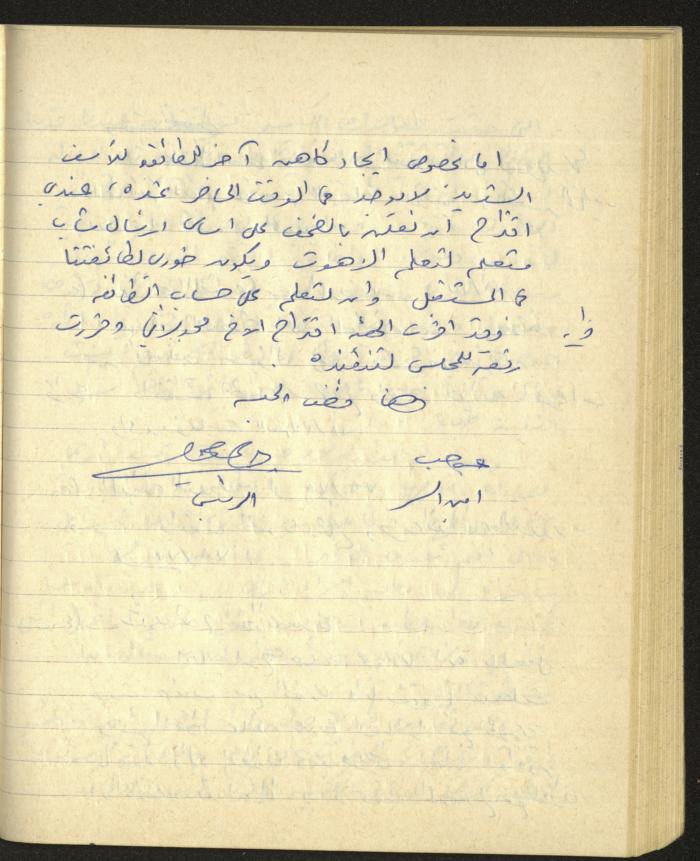 اما بخصوص ايجاد كاهن آخر للطائفة للأسف
الشديد لا يوجد في الوقت الحاضر عنده، عندي
اقتراح ان نعتني بالضعف على اساس ارسال شاب
متعلم لتعلم اللاهوت ويكون خوري لطائفتنا
في المستقبل وان يتعلم على حساب الطائفة
وقد اقرت اللجنة اقتراح الاخ وقررت
رفعه للمجلس لتنفيذه .
وهنا فضت الجلسة
امين السر
الرئيس